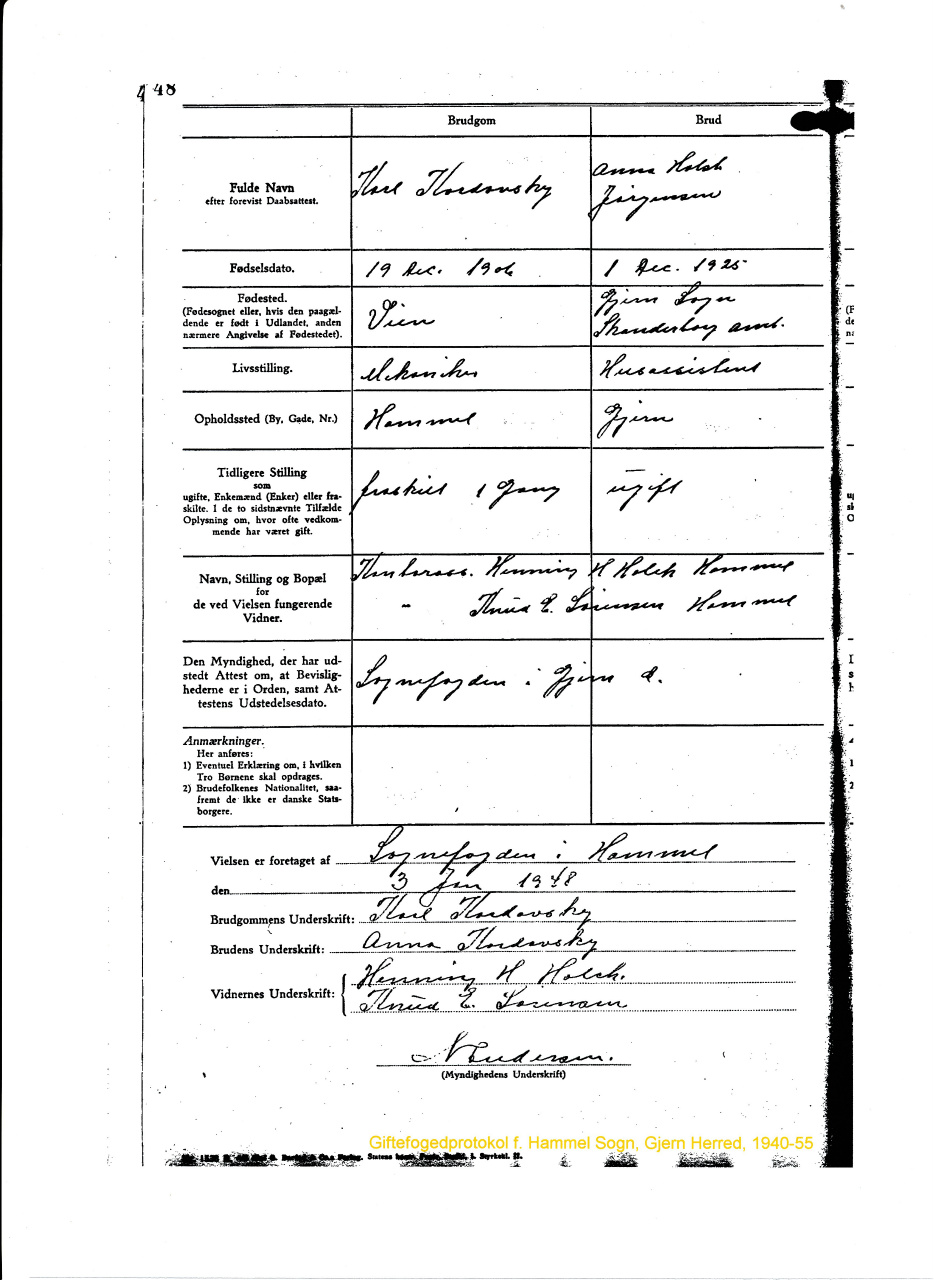 48
Brudgom Brud
Fulde Navn
efter forevist Daabsattest.
Karl Kordovsky
Anna Holch
Jørgensen
Fødselsdato.
19 Dec. 1906
1 Dec. 1925
Fødested.
(Fødesognet eller, hvis den paagæl-
dende er født i Udlandet, anden
nærmere Angivelse af Fødestedet).
Vien
Gjern Sogn
Skanderborg amt.
Livsstilling.
Mekaniker
Husassistent
Opholdssted (By, Gade, Nr.)
Hammel
Gjern
Tidligere Stilling
som
ugifte, Enkemænd (Enker) eller fra-
skilte. I de to sidstnævnte Tilfælde
Oplysning om, hvor ofte vedkom-
mende har været gift.
fraskilt 1 Gang
ugift
Navn, Stilling og Bopæl
for
de ved Vielsen fungerende
Vidner.
Kontorass. Henning H Holch Hammel
" Knud E. Sørensen Hammel
Den Myndighed, der har ud-
stedt Attest om, at Bevislig-
hederne er i Orden, samt At-
testens Udstedelsesdato.
Sognefogden i Gjern d.
Anmærkninger.
Her anføres:
1) Eventuel Erklæring om, i hvilken
Tro Børnene skal opdrages.
2) Brudefolkenes Nationalitet, saa-
fremt de ikke er danske Stats-
borgere.
Vielsen er foretaget af Sognefogden i Hammel
den 3 Jan 1948
Brudgommens Underskrift: Karl Kordovsky
Brudens Underskrift: Anna Kordovsky
Vidnernes Underskrift: Henning H Holch.
Knud E. Sørensen
Andersen.
(Myndighedens Underskrift)
Giftefogedprotokol f. Hammel Sogn, Gjern Herred, 1940-55